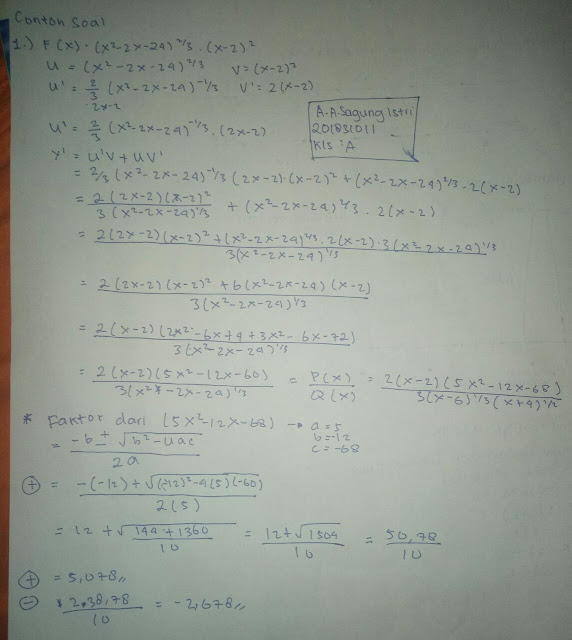 Contoh Soal
1.) F(x) = (x²-2x-24)^2/3 . (x-2)²
U = (x²-2x-24)^2/3 V = (x-2)²
U' = 2/3 (x²-2x-24)^-1/3 V' = 2(x-2)
2x-2
U' = 2/3 (x²-2x-24)^-1/3 . (2x-2)
A.A.Sagung Istri
201831011
Kls : A
Y' = U'V + UV'
= 2/3 (x²-2x-24)^-1/3 (2x-2).(x-2)² + (x²-2x-24)^2/3 . 2(x-2)
= 2(2x-2)(x-2)² / 3(x²-2x-24)^1/3 + (x²-2x-24)^2/3 . 2(x-2)
= 2(2x-2)(x-2)² + (x²-2x-24)^2/3 . 2(x-2) . 3(x²-2x-24)^1/3 / 3(x²-2x-24)^1/3
= 2(2x-2)(x-2)² + 6(x²-2x-24)(x-2) / 3(x²-2x-24)^1/3
= 2(x-2)(2x²-6x+4+3x²-6x-72) / 3(x²-2x-24)^1/3
= 2(x-2)(5x²-12x-60) / 3(x²-2x-24)^1/3 = P(x) / Q(x) = 2(x-2)(5x²-12x-68) / 3(x-6)^1/3 (x+4)^1/2
* Faktor dari (5x²-12x-68) → a = 5
b = -12
c = -68
= -b ± √b²-4ac / 2a
⊕ = -(-12) + √(-12)²-4(5)(-60) / 2(5)
= 12 + √144+1360 / 10 = 12+√1504 / 10 = 50,78 / 10
⊕ = 5,078,,
⊖ 38,78 / 10 = -2,678,,